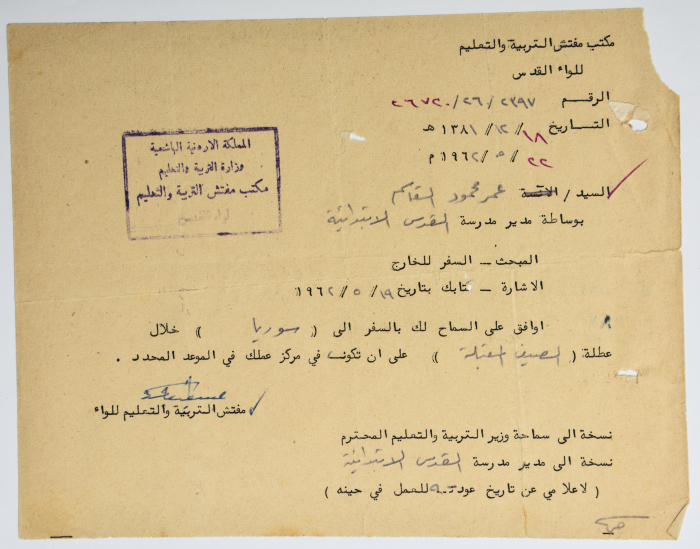 مكتب مفتش التربية والتعليم
للواء القدس
الرقم ٢٦٧٢٠/٢٦/٢٣٩٧
التاريخ ١٨/ ١٢// ١٣٨١ هـ
٢٢/ ٥ // ١٩٦٢ م
المملكة الاردنية الهاشمية
وزارة التربية والتعليم
مكتب مفتش التربية والتعليم
لواء القدس
السيد / الآنسة عمر محمود القاسم
بوساطة مدير مدرسة القدس الابتدائية
المبحث – السفر للخارج
الاشارة – كتابك بتاريخ ١٩/ ٥ // ١٩٦٢
اوافق على السماح لك بالسفر الى ( سوريا ) خلال
عطلة ( الصيف المقبلة ) على ان تكون في مركز عملك في الموعد المحدد .
مفتش التربية والتعليم للواء
نسخة الى سماحة وزير التربية والتعليم المحترم
نسخة الى مدير مدرسة القدس الابتدائية
( لاعلامي عن تاريخ عودته للعمل في حينه )